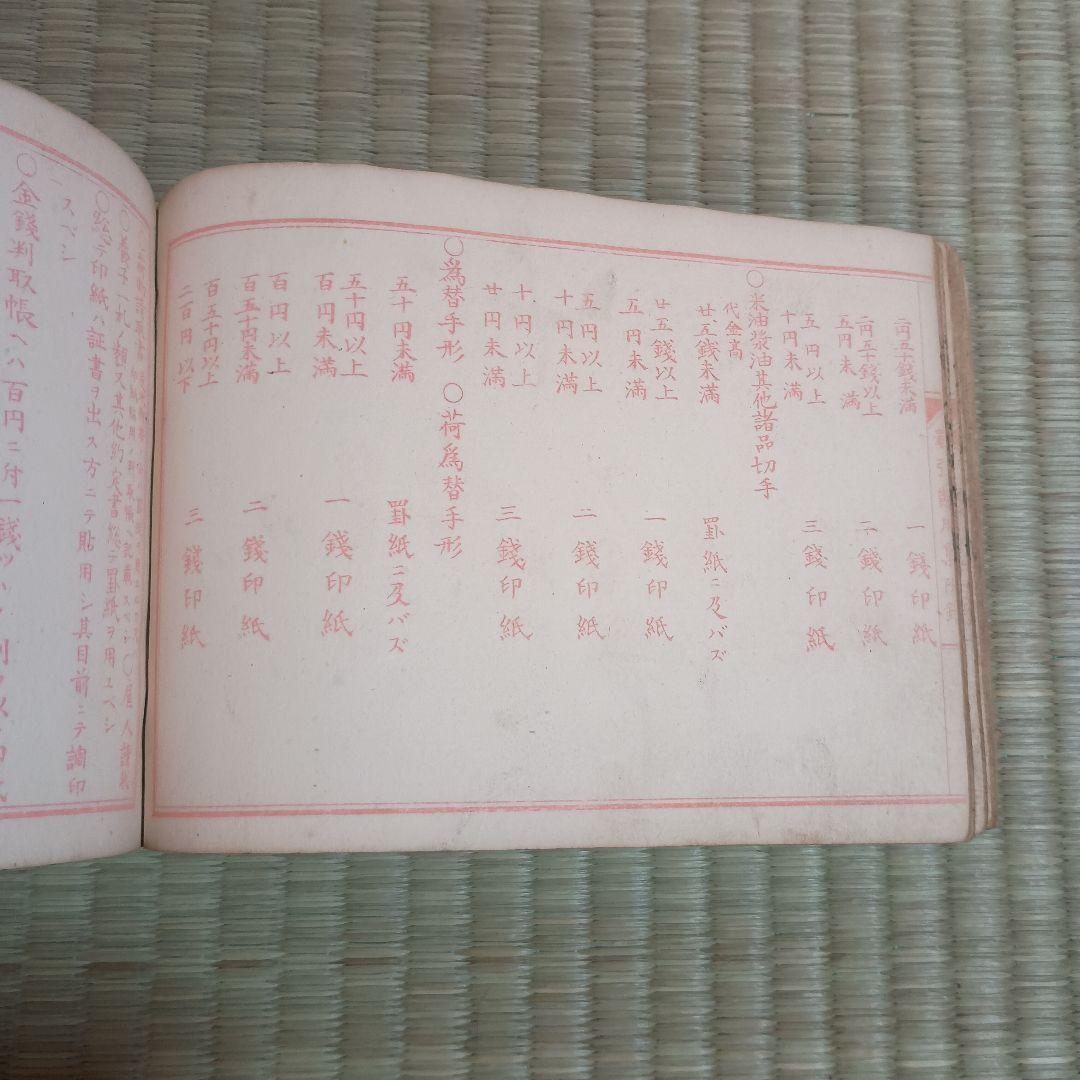 二円五十錢未満 一錢印紙
二円五十錢以上
五円未満 二錢印紙
五円以上
十円未満 三錢印紙
〇米油漿油其他諸品切手
代金高
廿五錢未満 罫紙ニ及バズ
廿五錢以上
五円未満 一錢印紙
五円以上
十円未満 二錢印紙
十円以上
廿円未満 三錢印紙
〇為替手形 〇荷為替手形
五十円未満 罫紙ニ及バズ
五十円以上
百円未満 一錢印紙
百円以上
百五十円未満 二錢印紙
百五十円以上
二百円以下 三錢印紙
類ス其他約定書総テ罫紙ヲ用ユベシ
〇総テ印紙ハ証書ヲ出ス方ニテ貼用シ其目前ニテ調印
スベシ
〇金錢判取帳ヘハ百円ニ付一錢ヅヽ